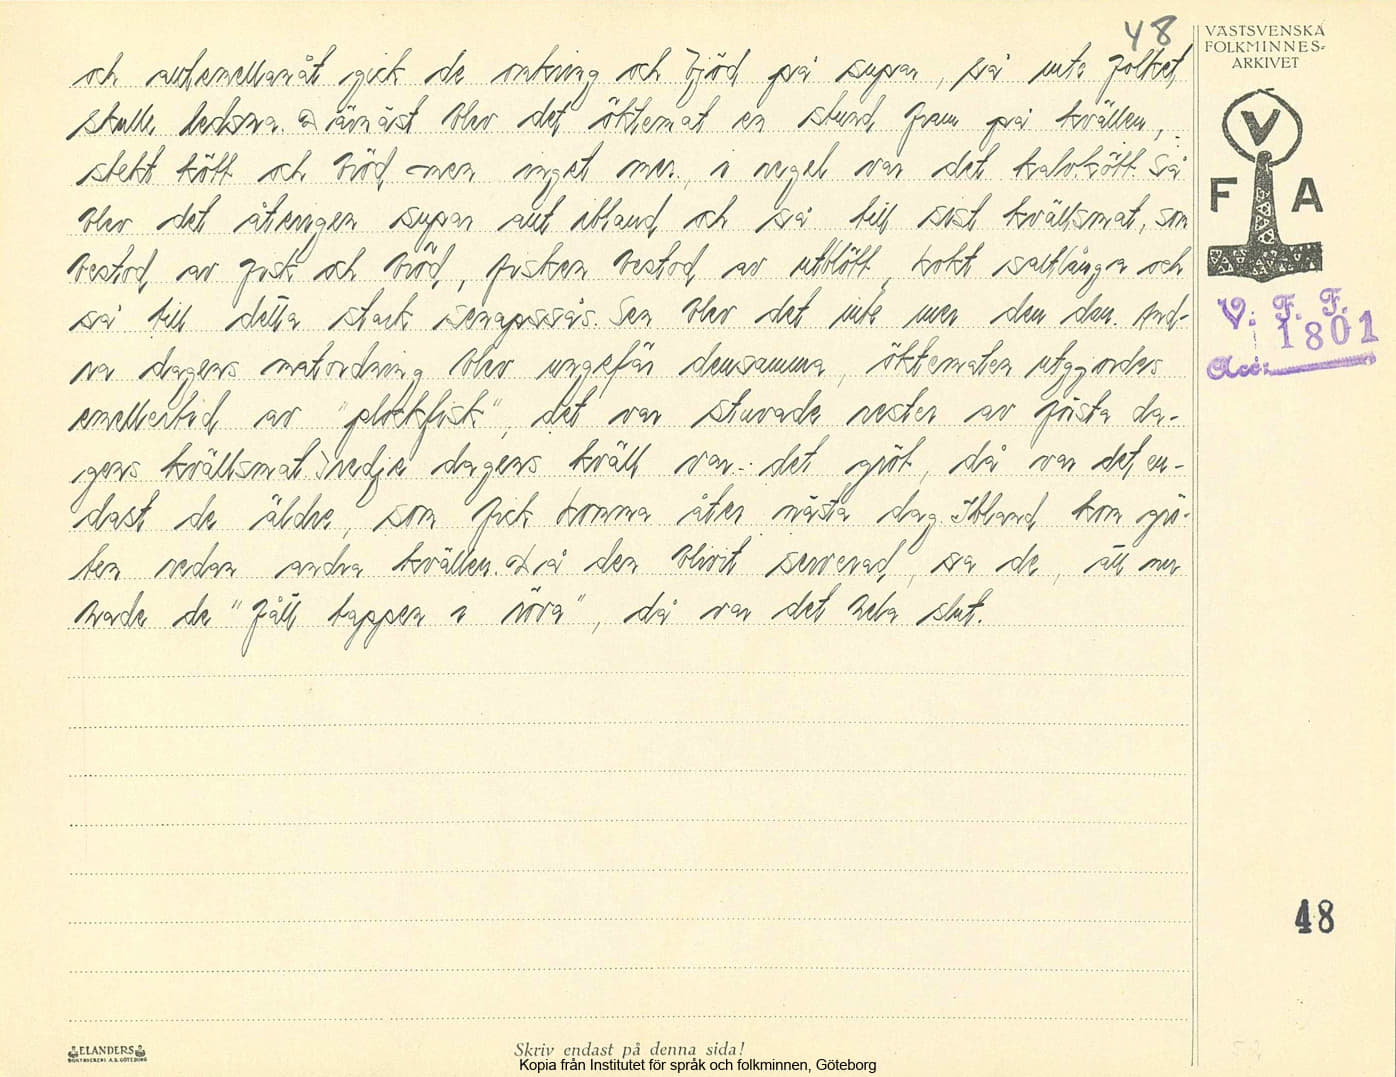 48
och autemellanåt gick de omkring och bjöd på supar, så inte folket
skulle ledsna. Därnäst blev det öktemat en stund fram på kvällen,
stekt kött och bröd men inget mer, i regel var det kalvkött. Så
blev det återigen supar aut ibland och så till sist kvällsmat, som
bestod av fisk och bröd, fisken bestod av utblött, kokt saltlånga och
så till detta stark senapssås. Sen blev det inte mer den dan. And-
ra dagens matordning blev ungefär densamma, öktematen utgjordes
emellertid av "plockfisk", det var stuvade rester av första da-
gens kvällsmat. Tredje dagens kväll var det gröt, då var det en-
dast de äldre, som fick komma åter nästa dag. Ibland kom grö-
ten redan andra kvällen. Då den blivit serverad, sa de, att nu
hade de "fått tappen i röva", då var det hela slut.
VÄSTSVENSKA
FOLKMINNES-
ARKIVET
V
F A
V. F. F.
1801
Acc:
48
ELANDERS
BOKTRYCKERI A.B. GÖTEBORG
Skriv endast på denna sida!
Kopia från Institutet för språk och folkminnen, Göteborg